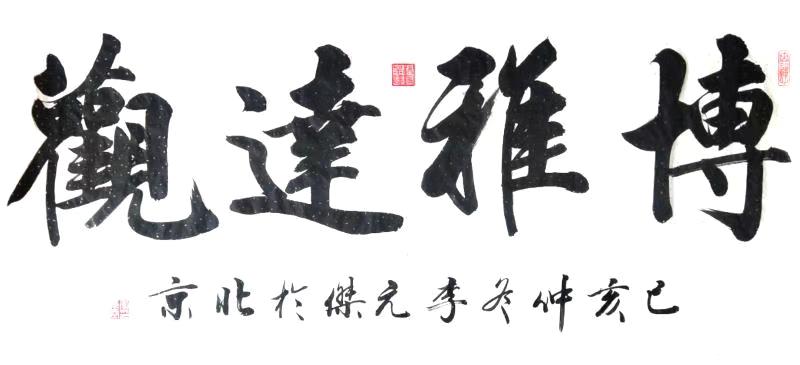 博雅達觀
己亥仲冬李元傑於北京